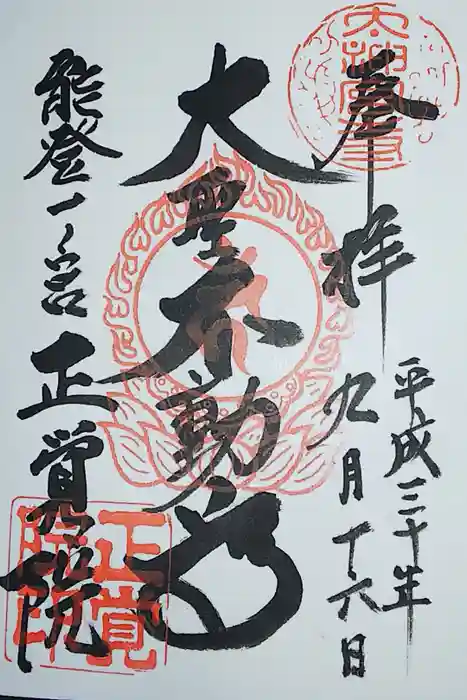 奉拝
平成三十年
九月十六日
大聖不動尊
能登一ノ宮 正覚院
正覚
院印